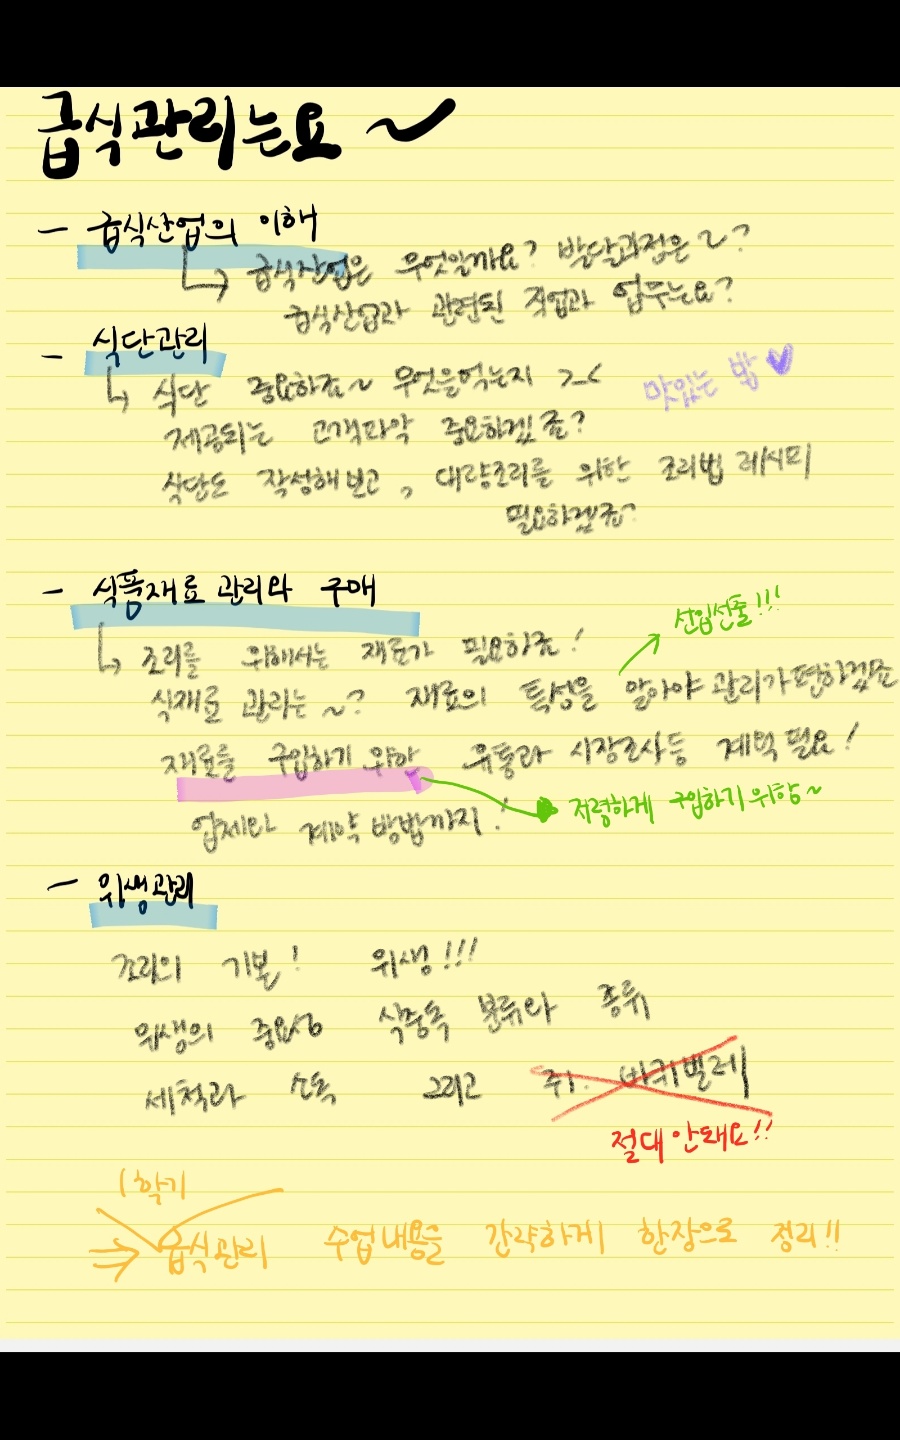 급식관리는요~
- 급식산업의 이해
급식산업은 무엇일까요? 발달과정은~?
급식산업과 관련된 직업과 업무는요?
- 식단관리
식단 중요하죠~ 무엇을먹는지 >_<
맛있는 밥♥
제공되는 고객파악 중요하겠죠?
식단도 작성해보고, 대량조리를 위한 조리법 레시피
필요하겠죠?
- 식품재료 관리와 구매
선입선출!!!
조리를 위해서는 재료가 필요하죠!
식재료 관리는~? 재료의 특성을 알아야 관리가편하겠죠
재료를 구입하기 위하 유통과 시장조사등 계획필요!
저렴하게 구입하기위함~
업체와 계약 방법까지!
- 위생관리
조리의 기본! 위생!!!
위생의 중요성 식중독 분류와 종류
세척과 소독 그리고 쥐. 바퀴벌레
절대안돼요!!
1학기
급식관리 수업내용을 간략하게 한장으로 정리!!